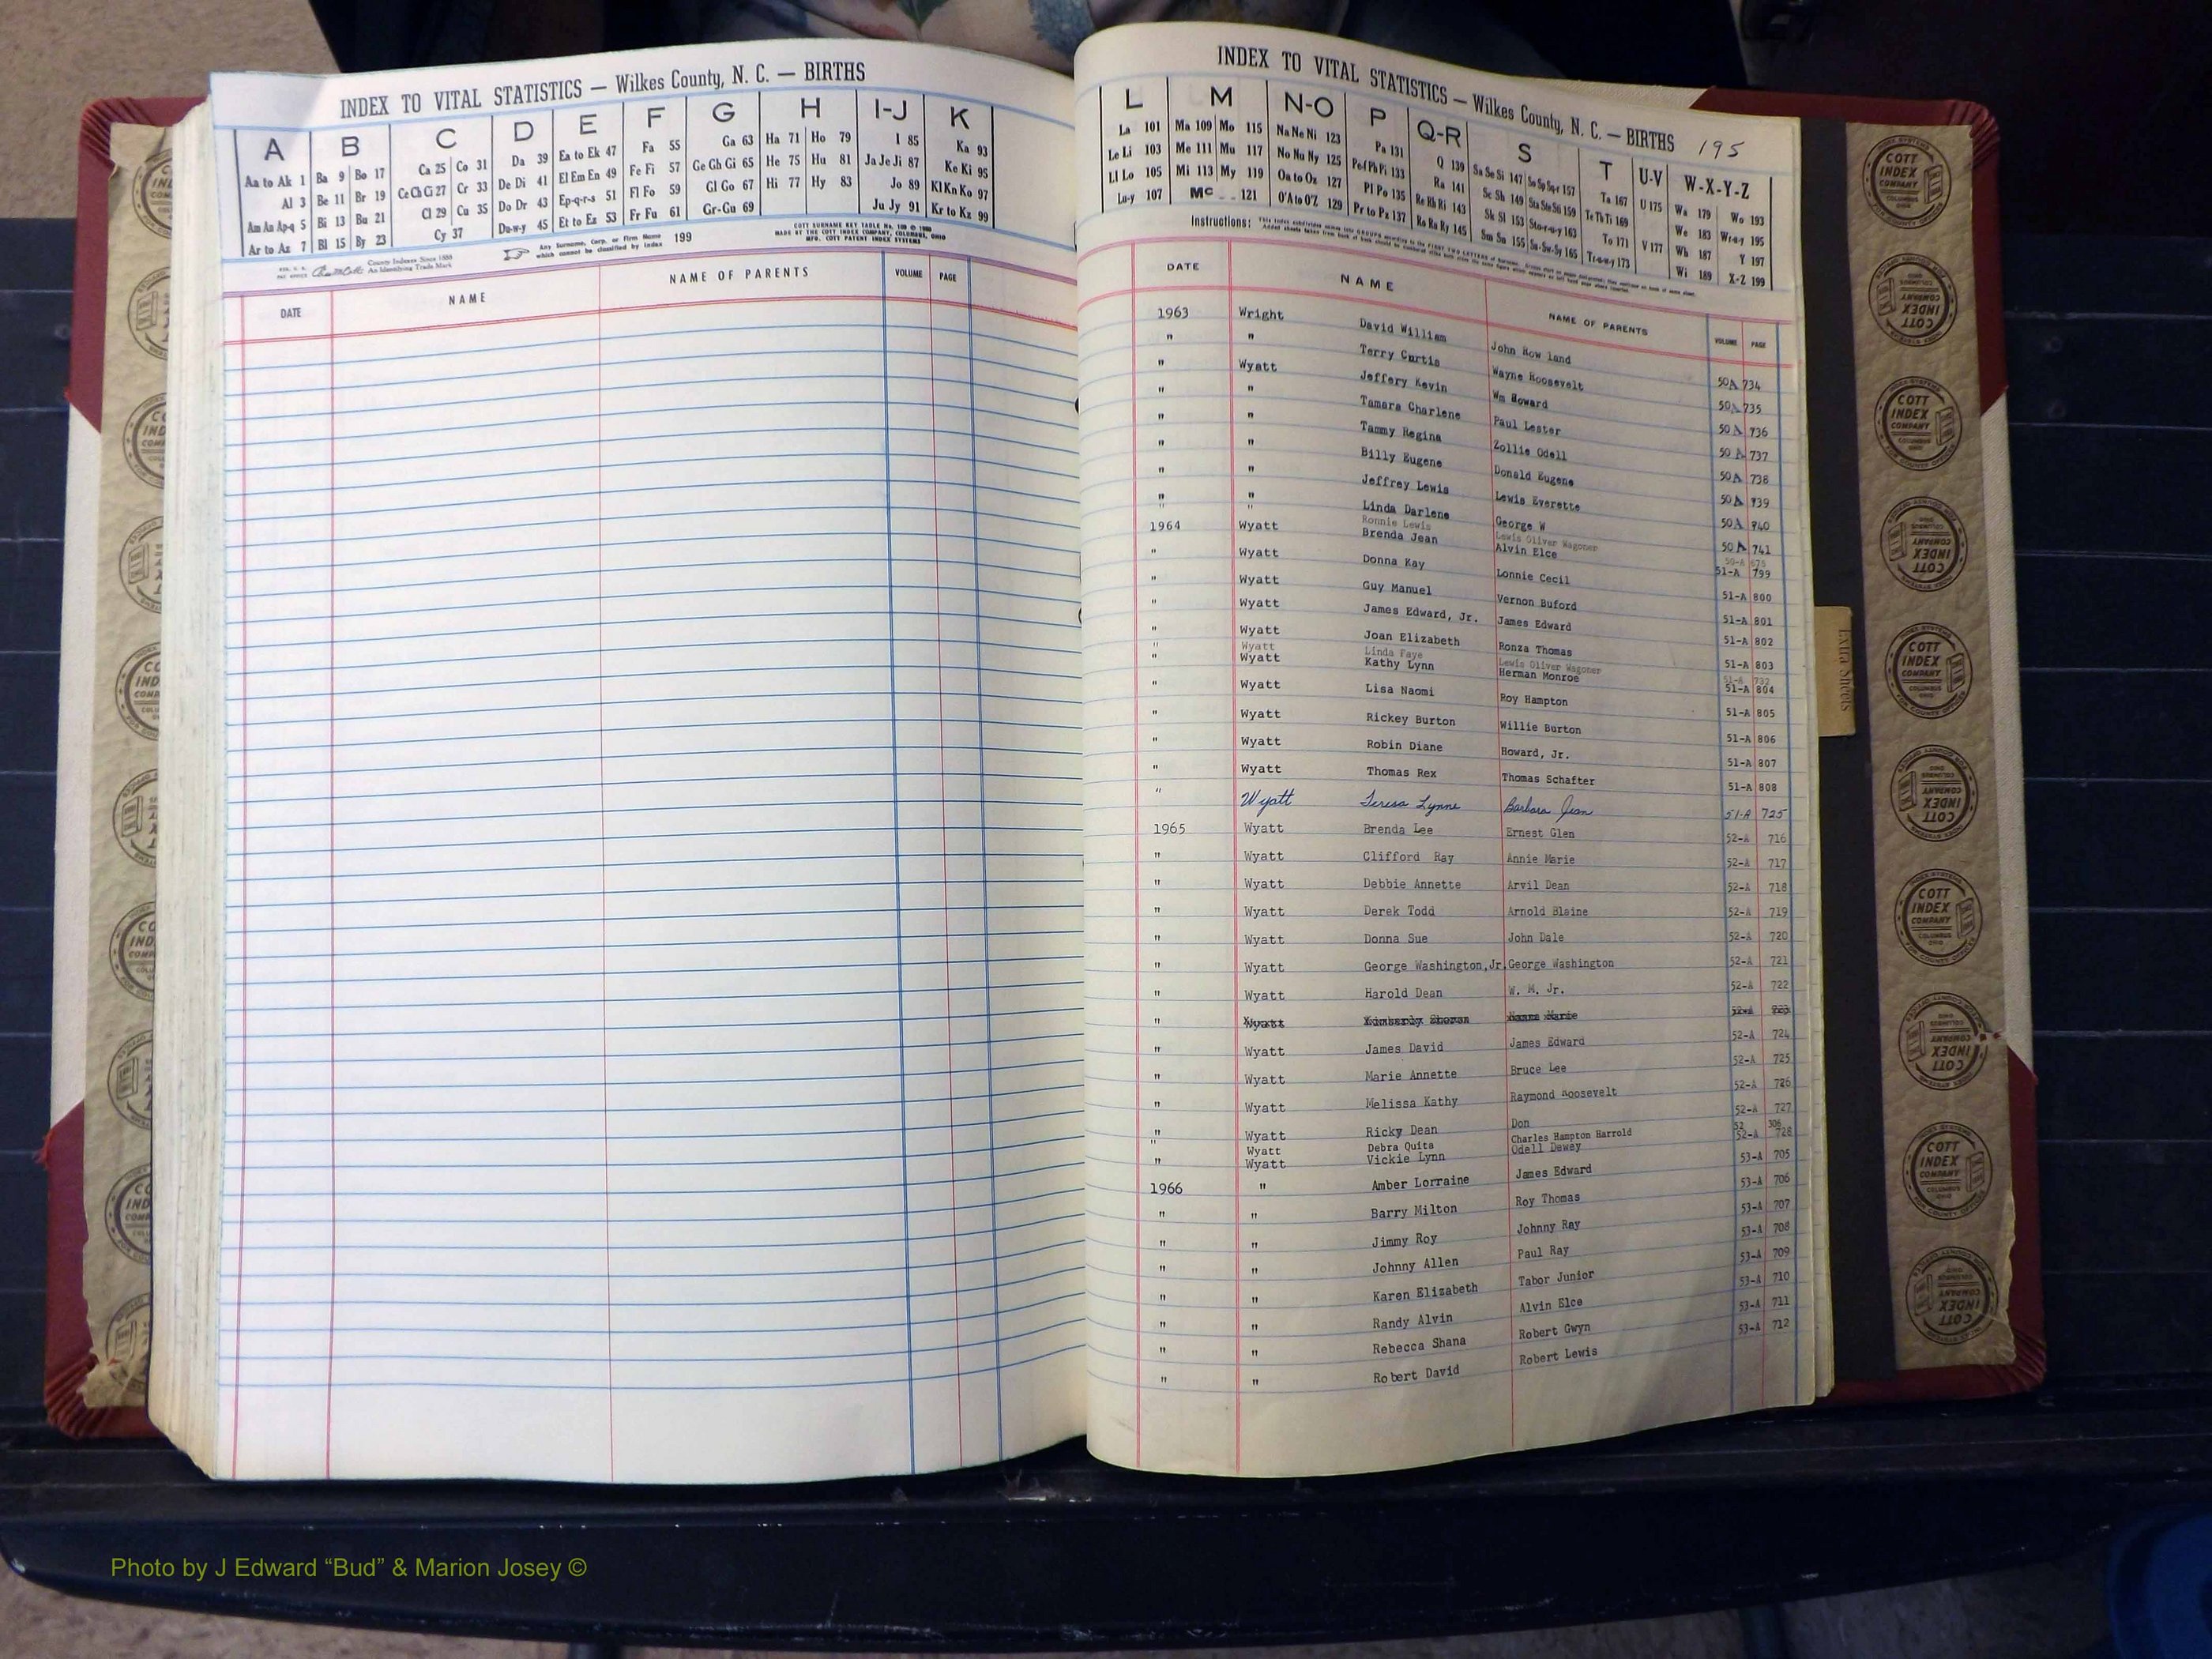 INDEX TO VITAL STATISTICS — Wilkes County, N. C. — BIRTHS
A B C D E F G H I-J K
Aa to Ak 1 Ba 9 Bo 17 Ca 25 Co 31 Da 39 Ea to Ek 47 Fa 55 Ga 63 Ha 71 Ho 79 I 85 Ka 93
Al 3 Be 11 Br 19 Ce Ch Ci 27 Cr 33 De Di 41 El Em En 49 Fe Fi 57 Ge Gh Gi 65 He 75 Hu 81 Ja Je Ji 87 Ke Ki 95
Am An Ap-q 5 Bi 13 Bu 21 Cl 29 Cu 35 Do Dr 43 Ep-q-r-s 51 Fl Fo 59 Gl Go 67 Hi 77 Hy 83 Jo 89 Kl Kn Ko 97
Ar to Az 7 Bl 15 By 23 Cy 37 Du-w-y 45 Et to Ez 53 Fr Fu 61 Gr-Gu 69 Ju Jy 91 Kr to Kz 99
County Indexes Since 1888
An Identifying Trade Mark
Any Surname, Corp. or Firm Name which cannot be classified by Index 199
MADE BY THE COTT INDEX COMPANY, COLUMBUS, OHIO
MFG. COTT PATENT INDEX SYSTEMS
DATE NAME NAME OF PARENTS VOLUME PAGE
INDEX TO VITAL STATISTICS — Wilkes County, N. C. — BIRTHS 195
L M N-O P Q-R S T U-V W-X-Y-Z
La 101 Ma 109 Mo 115 Na Ne Ni 123 Pa 131 Q 139 Sa Se Si 147 So Sp Sq-r 157 Ta 167 U 175 Wa 179 Wo 193
Le Li 103 Me 111 Mu 117 No Nu Ny 125 Pe-f Ph Pi 133 Ra 141 Sc Sh 149 Sta Ste Sti 159 Te Th Ti 169 We 183 Wr-u-y 195
Ll Lo 105 Mi 113 My 119 Oa to Oz 127 Pl Po 135 Re Rh Ri 143 Sk Sl 153 Sto-r-u-y 163 To 171 V 177 Wh 187 Y 197
Lu-y 107 Mc 121 O'A to O'Z 129 Pr to Pz 137 Ro Ru Ry 145 Sm Sn 155 Su-Sw-Sy 165 Tr-u-w-y 173 Wi 189 X-Z 199
Instructions:
DATE NAME NAME OF PARENTS VOLUME PAGE
1963 Wright David William John Row land 50A 734
" " Terry Curtis Wayne Roosevelt 50A 735
" Wyatt Jeffery Kevin Wm Howard 50A 736
" " Tamara Charlene Paul Lester 50A 737
" " Tammy Regina Zollie Odell 50A 738
" " Billy Eugene Donald Eugene 50A 739
" " Jeffrey Lewis Lewis Everette 50A 740
" " Linda Darlene George W 50A 741
" " Ronnie Lewis Lewis Oliver Wagoner 50-A 675
1964 Wyatt Brenda Jean Alvin Elce 51-A 799
" Wyatt Donna Kay Lonnie Cecil 51-A 800
" Wyatt Guy Manuel Vernon Buford 51-A 801
" Wyatt James Edward, Jr. James Edward 51-A 802
" Wyatt Joan Elizabeth Ronza Thomas 51-A 803
" Wyatt Linda Faye Lewis Oliver Wagoner 51-A 732
" Wyatt Kathy Lynn Herman Monroe 51-A 804
" Wyatt Lisa Naomi Roy Hampton 51-A 805
" Wyatt Rickey Burton Willie Burton 51-A 806
" Wyatt Robin Diane Howard, Jr. 51-A 807
" Wyatt Thomas Rex Thomas Schafter 51-A 808
" Wyatt Teresa Lynne Barbara Jean 51-A 725
1965 Wyatt Brenda Lee Ernest Glen 52-A 716
" Wyatt Clifford Ray Annie Marie 52-A 717
" Wyatt Debbie Annette Arvil Dean 52-A 718
" Wyatt Derek Todd Arnold Blaine 52-A 719
" Wyatt Donna Sue John Dale 52-A 720
" Wyatt George Washington,Jr. George Washington 52-A 721
" Wyatt Harold Dean W. M. Jr. 52-A 722
" Wyatt
" Wyatt James David James Edward 52-A 724
" Wyatt Marie Annette Bruce Lee 52-A 725
" Wyatt Melissa Kathy Raymond Roosevelt 52-A 726
" Wyatt Ricky Dean Don 52-A 727
" Wyatt Debra Quita Charles Hampton Harrold 52 306
" Wyatt Vickie Lynn Odell Dewey 52-A 728
1966 " Amber Lorraine James Edward 53-A 705
" " Barry Milton Roy Thomas 53-A 706
" " Jimmy Roy Johnny Ray 53-A 707
" " Johnny Allen Paul Ray 53-A 708
" " Karen Elizabeth Tabor Junior 53-A 709
" " Randy Alvin Alvin Elce 53-A 710
" " Rebecca Shana Robert Gwyn 53-A 711
" " Robert David Robert Lewis 53-A 712
Extra Sheets
COTT INDEX COMPANY COLUMBUS OHIO
INDEX SYSTEMS FOR COUNTY OFFICES
Photo by J Edward “Bud” & Marion Josey ©